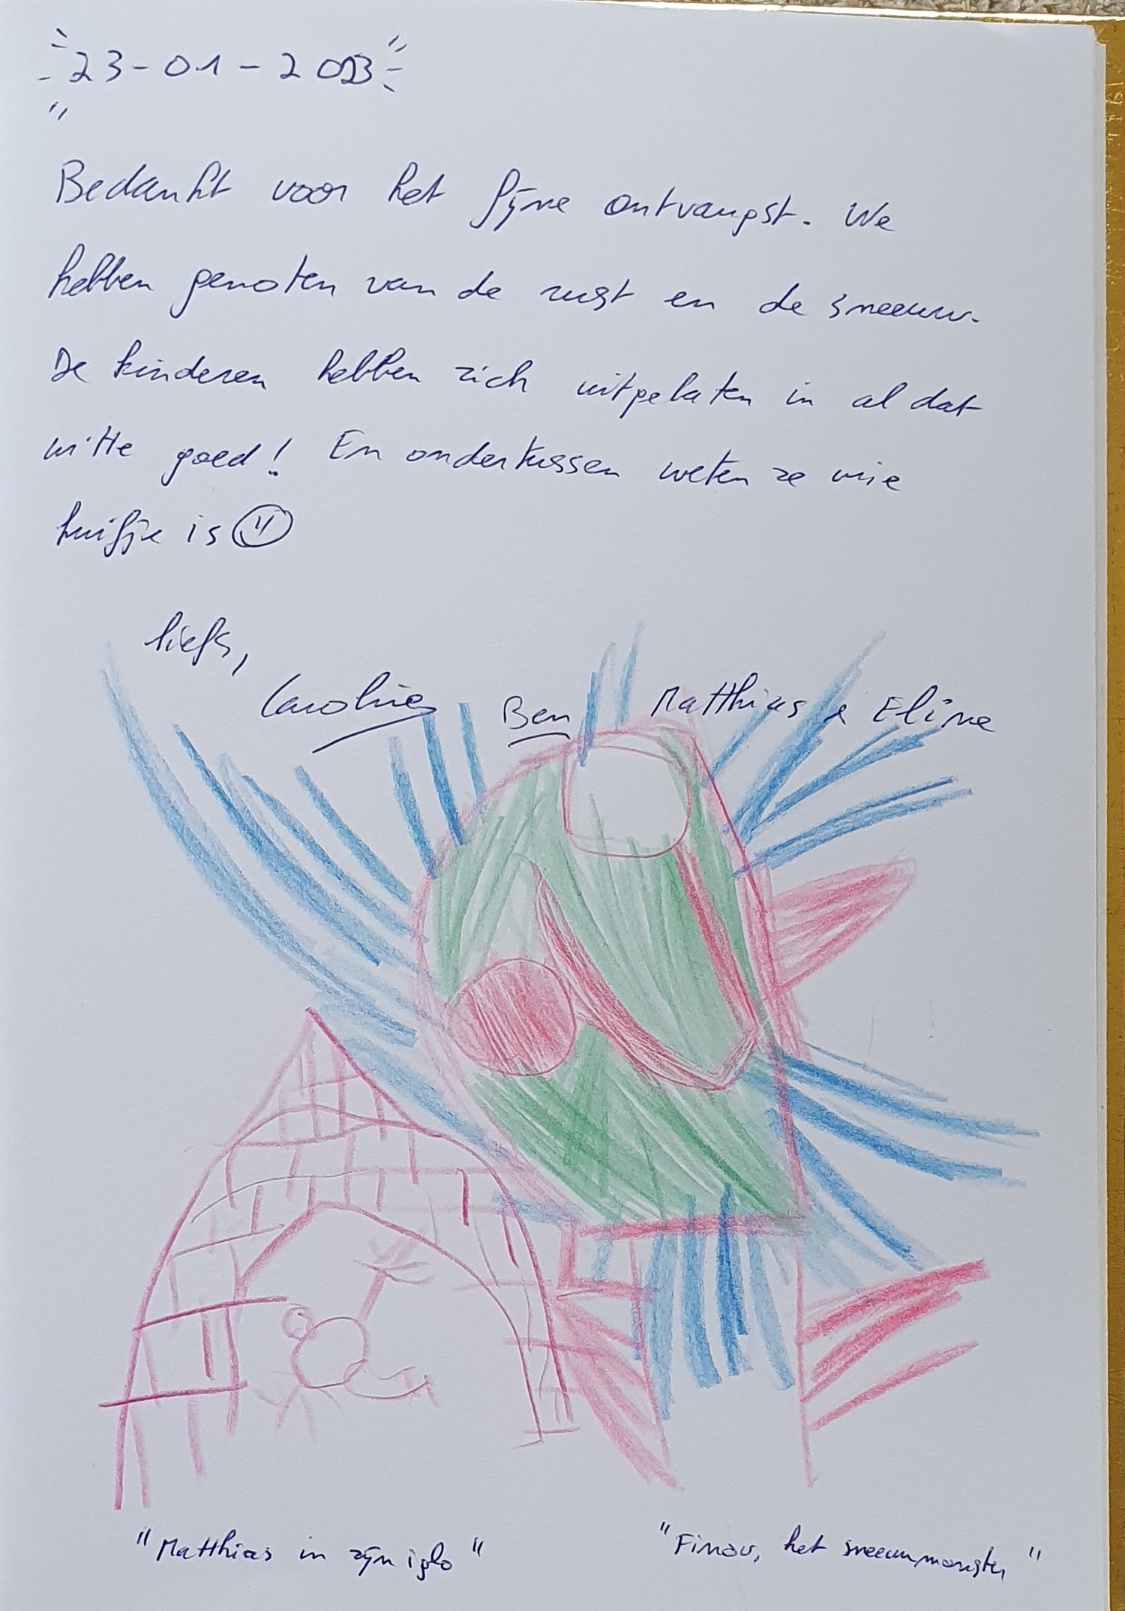 23-01-2023
Bedankt voor het fijne ontvangst. We
hebben genoten van de rust en de sneeuw.
De kinderen hebben zich uitgelaten in al dat
witte goed! En ondertussen weten ze wie
huifje is
liefs,
Caroline Ben Matthias & Eline
"Matthias in zijn iglo" "Finou, het sneeuwmonster"